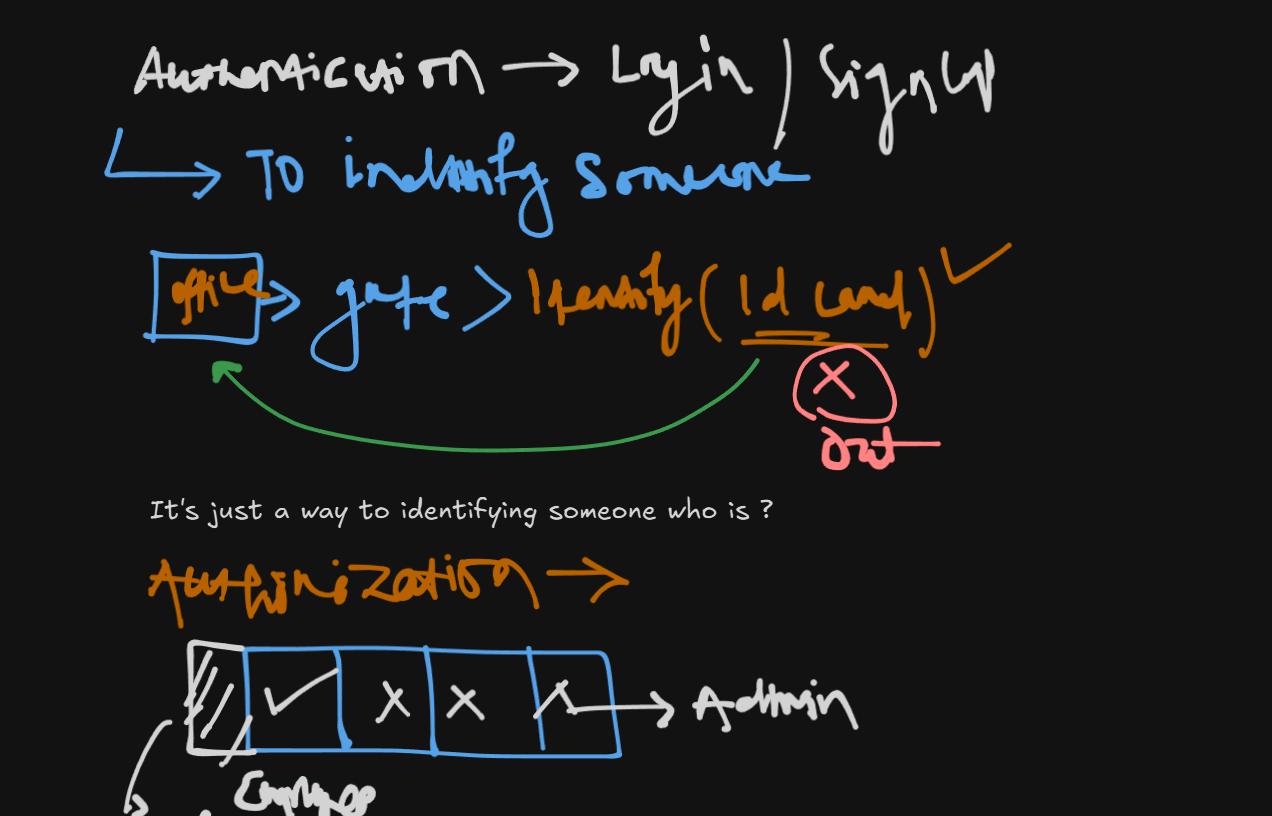 Authentication → Login / SignUp
↳ To indentify someone
office → gate > Identity (Id Card) ✓
X
Out
It's just a way to identifying someone who is ?
Authorization →
✓ X X X → Admin
Employee